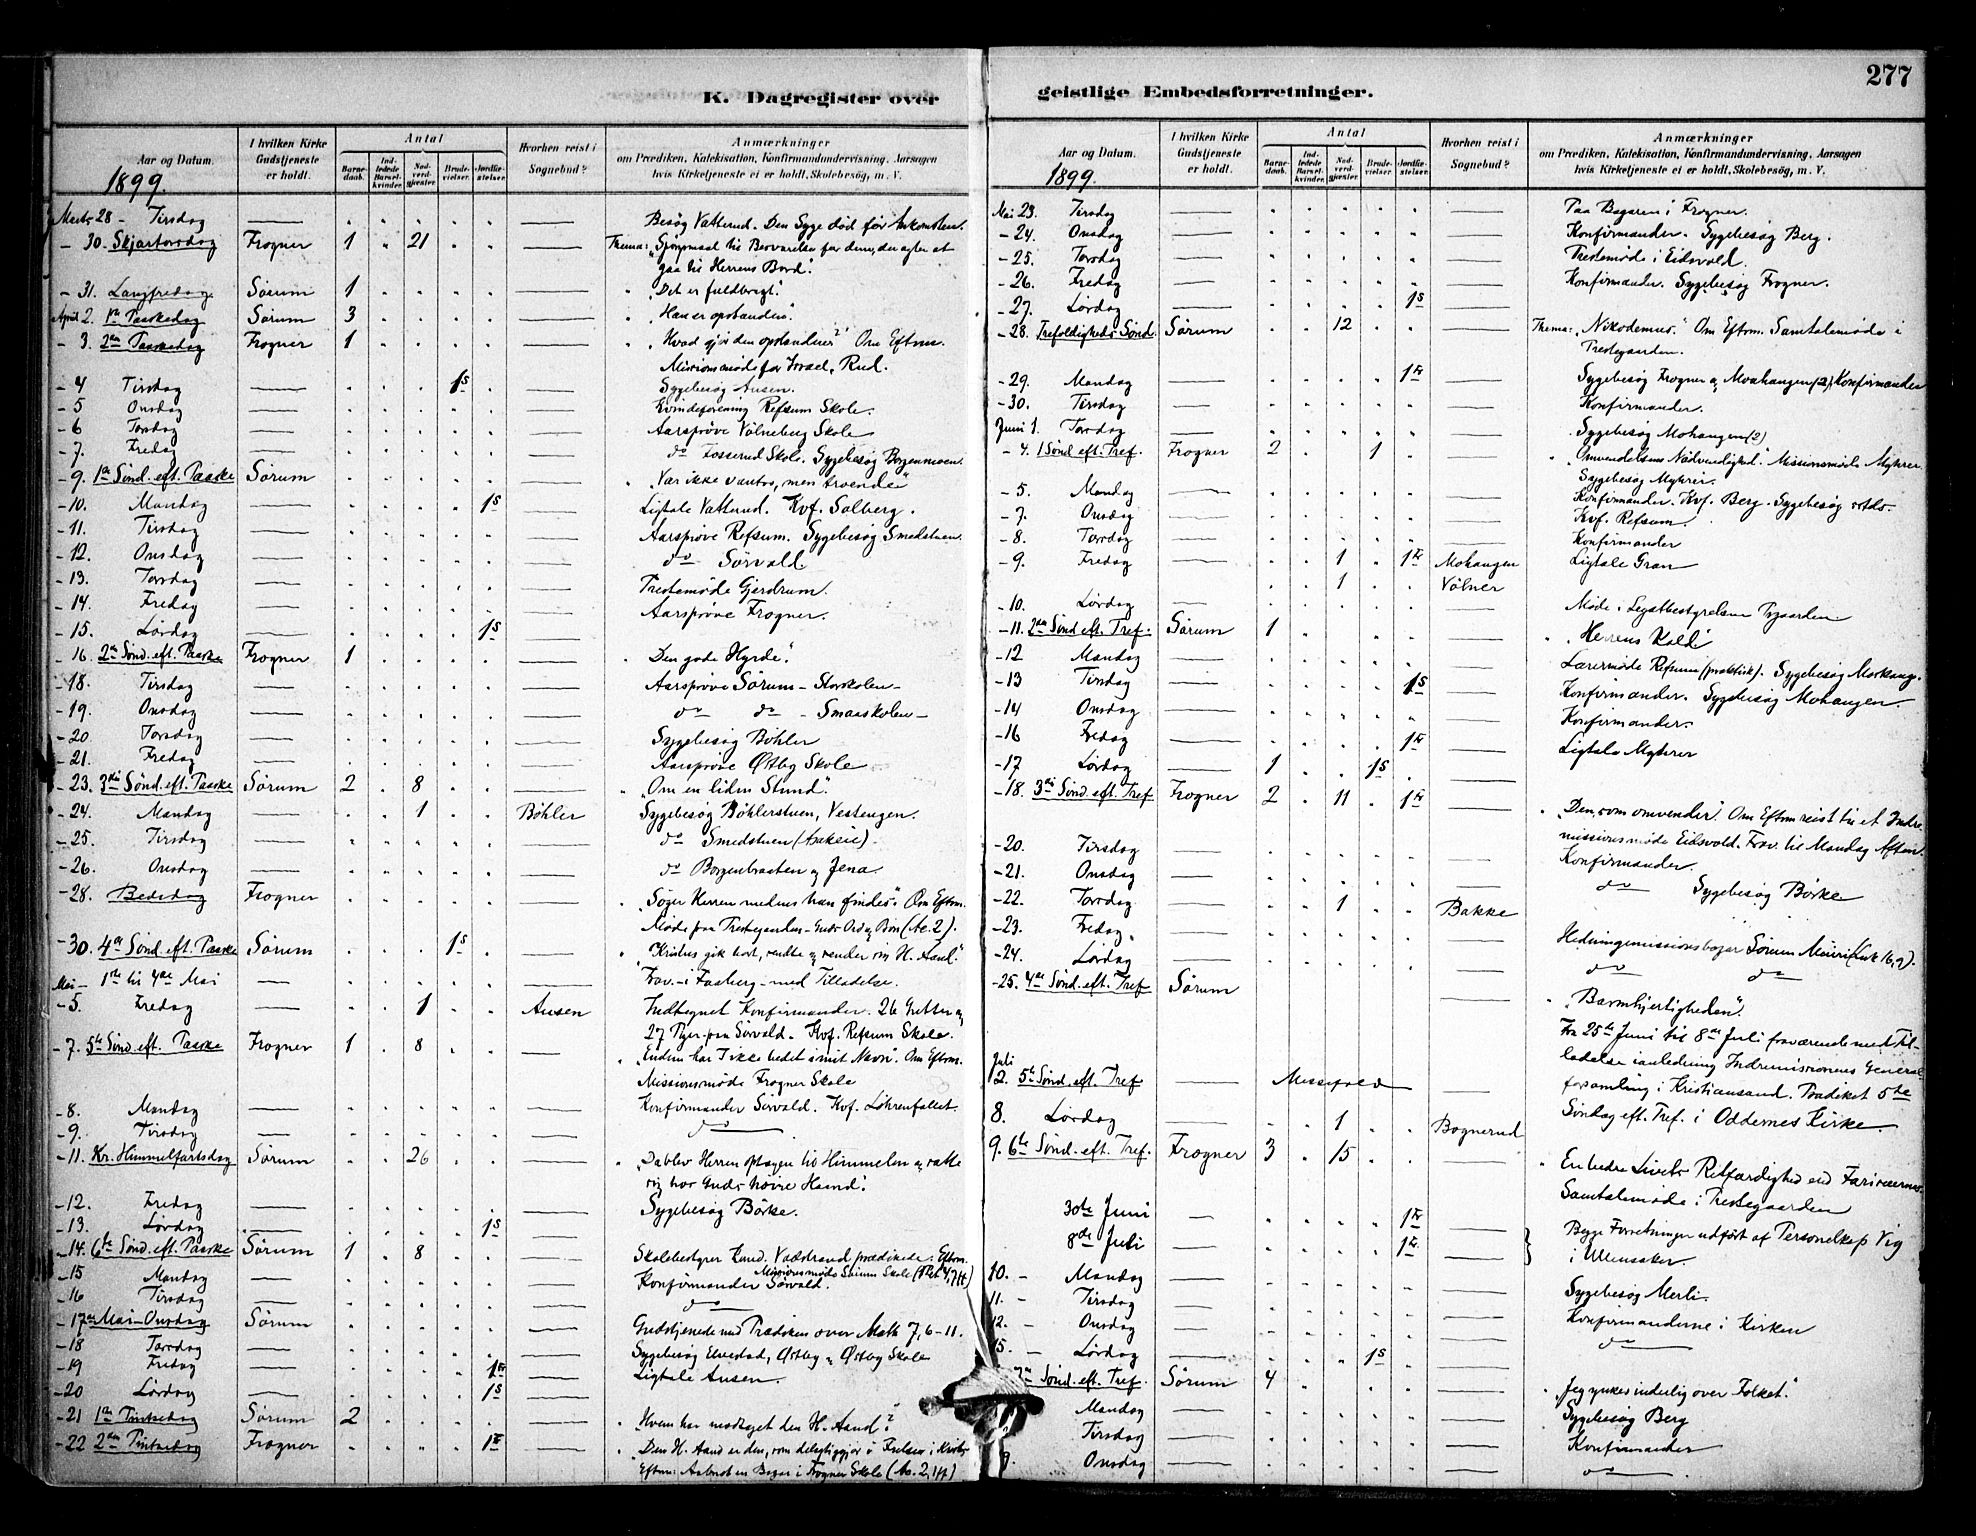 277
K. Dagregister over
geistlige Embedsforretninger.
Aar og Datum.
I hvilken Kirke Gudstjeneste er holdt.
Antal
Barnedaab.
Indledede Barselkvinder.
Nadverdgjæster.
Brudevielser.
Jordfæstelser.
Hvorhen reist i Sognebud?
Anmærkninger
om Prædiken, Katekisation, Konfirmandundervisning, Aarsagen
hvis Kirketjeneste ei er holdt, Skolebesøg, m. V.
1899.
Marts 28 - Tirsdag Besøg Vatterud. Den Syge død før Ankomsten.
- 30. Skjærtorsdag Frogner 1 21 Thema: "Spørgsmaal til Besvarelse for dem, der agte at
gaa til Herrens Bord".
- 31. Langfredag Sørum 1 "Det er fuldbragt."
April 2. 1ste Paaskedag Sørum 3 "Han er opstanden".
- 3. 2den Paaskedag Frogner 1 "Hvad gjør den opstandne?" Om Eftm.
Missionsmøde for Israel, Rud.
- 4 Tirsdag 1 S Sygebesøg Ausen.
- 5 Onsdag Kvindeforening Refsum Skole.
- 6 Torsdag Aarsprøve Vølneberg Skole
- 7. Fredag do Fosserud Skole. Sygebesøg Borgenmoen.
- 9. 1ste Sønd. eft. Paaske Sørum "Vær ikke vantro, men troende"
- 10. Mandag 1 S Ligtale Vatterud. Kvf. Solberg.
- 11. Tirsdag Aarsprøve Refsum. Sygebesøg Smedstuen.
- 12. Onsdag do Sørvald
- 13. Torsdag Præstemøde Gjerdrum.
- 14. Fredag Aarsprøve Frogner.
- 15. Lørdag 1 S
- 16 2den Sønd. eft. Paaske Frogner 1 "Den gode Hyrde".
- 18. Tirsdag Aarsprøve Sørum - Storskolen -
- 19. Onsdag do do - Smaaskolen -
- 20. Torsdag Sygebesøg Bøhler
- 21. Fredag Aarsprøve Østby Skole
- 23. 3die Sønd. eft. Paaske Sørum 2 8 "Om en liden Stund".
- 24. Mandag 1 Bøhler Sygebesøg Bøhlerstuen, Vestengen.
- 25. Tirsdag do Smedstuen
- 26. Onsdag do Borgenbraaten og Jena.
- 28. Bededag Frogner "Søger Herren medens han findes". Om Eftm.
Møde paa Præstegaarden - Guds Ord og Bøn (Ac. 2).
- 30. 4de Sønd. eft. Paaske Sørum 1 S "Kristus gik bort, sendte og sender sin H. Aand."
Mai - 1ste til 4de Mai Frav. - i Faaberg - med Tilladelse.
- 5. Fredag 1 Ausen Indtegnet Konfirmander. 26 Gutter og
27 Piger fra Sørvald. Kvf. Refsum Skole.
- 7. 5te Sønd. eft. Paaske Frogner 1 8 "Endnu har I ikke bedet i mit Navn". Om Eftm.
Missionsmøde Frogner Skole
- 8. Mandag Konfirmander Sørvald. Kvf. Løhrenfallet.
- 9. Tirsdag do
- 11. Kr. Himmelfartsdag Sørum 26 "Da blev Herren optagen til Himmelen og satte
sig hos Guds høire Haand".
- 12. Fredag Sygebesøg Børke.
- 13. Lørdag 1 S
- 14. 6te Sønd. eft. Paaske Sørum 1 8 Skolebestyrer Kand. prædikede. Eftm.
Missionsmøde Sørum Skole
- 15 Mandag Konfirmander Sørvald.
- 16 Tirsdag do
- 17de Mai - Onsdag Sørum Gudstjeneste med Prædiken over Math 7, 6-11.
- 18 Torsdag Sygebesøg Elvestad, Østby og Østby Skole
- 19 Fredag 1 Fr Ligtale Ausen.
- 20 Lørdag 1 S
- 21 1ste Pintsedag Sørum 2 "Hvem har modtaget den H. Aand?"
- 22 2den Pintsedag Frogner 1 Fr "Den H. Aand er den, som delagtiggjør i Frelsen i Kristo
Eftm: Basar i Frogner Skole
1899.
Mai 23. Tirsdag Paa Basaren i Frogner.
- 24. Onsdag Konfirmander. Sygebesøg Berg.
- 25. Torsdag Præstemøde i Eidsvold.
- 26. Fredag Konfirmander. Sygebesøg Frogner.
- 27. Lørdag 1 S
- 28. Trefoldigheds Sønd. Sørum 12 Thema: "Nikodemus." Om Eftm. Samtalemøde i
Præstegaarden.
- 29. Mandag 1 Fr Sygebesøg Frogner og Moahaugen (2), Konfirmander
- 30. Tirsdag Konfirmander.
Juni 1. Torsdag Sygebesøg Mohaugen (2)
- 4. 1 Sønd eft. Tref. Frogner 2 1 "Omvendelsens Nødvendighed." Missionsmøde Myhrer
Sygebesøg Myhrer.
- 5. Mandag Konfirmander. Kvf. Berg. Sygebesøg
- 7. Onsdag Kvf. Refsum
- 8. Torsdag Konfirmander
- 9. Fredag 1 1 Fr Mohaugen Ligtale Gran
1 Vølner
- 10. Lørdag Møde i Legatbestyrelsen
- 11. 2den Sønd eft. Tref. Sørum 1 "Herrens Kald"
- 12 Mandag Lærermøde Refsum (praktisk). Sygebesøg
- 13 Tirsdag 1 S Konfirmander. Sygebesøg Mohaugen
- 14 Onsdag Konfirmander.
- 16 Fredag 1 Fr Ligtale Myhrer
- 17 Lørdag 1 1 S
- 18. 3die Sønd. eft. Tref Frogner 2 11 1 Fr "Den, som omvender". Om Eftm reist til et Indre-
missionsmøde Eidsvold. Frav. til Mandag Aften.
- 20. Tirsdag Konfirmander
- 21. Onsdag do Sygebesøg Børke
- 22. Torsdag 1 Bakke
- 23. Fredag. Hedningemissionsbasar Sørum
- 24. Lørdag do do
- 25. 4de Sønd. eft. Tref Sørum "Barmhjertigheden".
Fra 25te Juni til 8de Juli fraværende med Til-
ladelse i anledning Indremissionens General-
Juli
2. 5te Sønd. eft. Tref Messefald forsamling i Kristiansand. Prædiket 5te
Søndag eft. Tref. i Oddernes Kirke.
8. Lørdag 1 Bognerud
9. 6te Sønd. eft. Tref. Frogner 3 15 "En bedre Livets Retfærdighed end Farisæernes.
Samtalemøde i Præstegaarden
30te Juni 1 Fr Begge Forretninger udført af Personelkap Vig
8de Juli 1 Fr i Ullensaker.
10. - Mandag Sygebesøg Merli.
11. - Tirsdag Konfirmanderne i Kirken
12. - Onsdag do
15. - Lørdag 1 S
Sønd. eft. Tref. Sørum 4 "Jeg ynkes inderlig over Folket."
Mandag Sygebesøg Berg
Tirsdag Konfirmander
Onsdag do